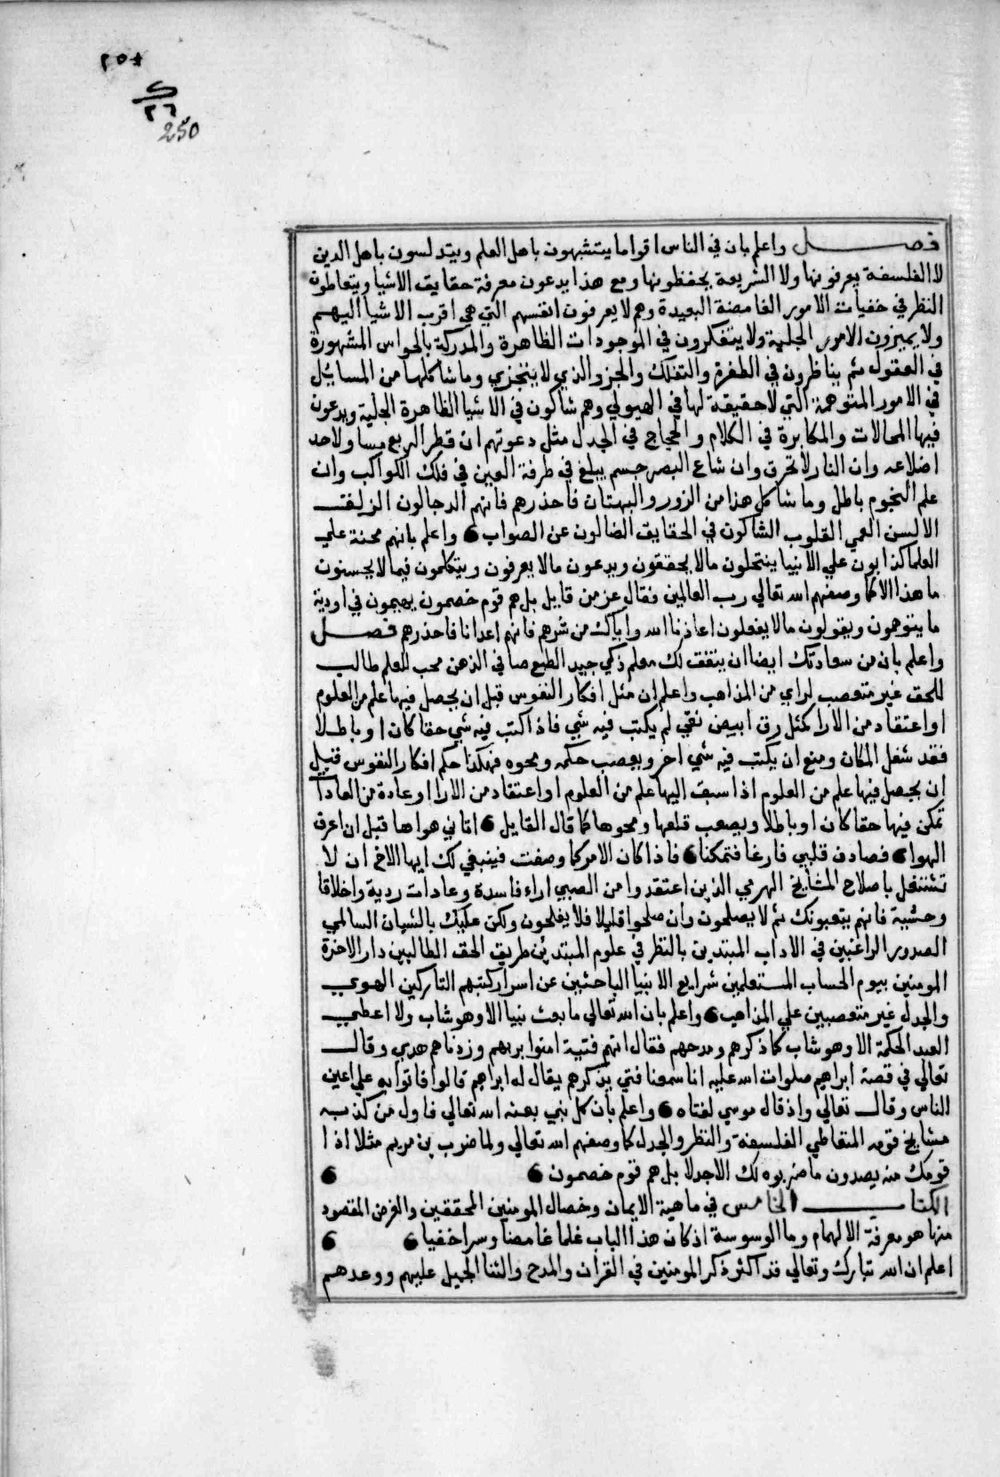 ٢٥٠
٢٦
250
فصل واعلم بان في الناس اقواما يتشبهون باهل العلم ويتدلسون باهل الدين
لا الفلسفة يعرفونها ولا الشريعة يحفظونها ومع هذا يدعون معرفة حقايق الاشيا ويتعاطون
النظر في خفيات الامور الغامضة البعيدة وهم لا يعرفون انفسهم التي هي اقرب الاشيا اليهم
ولا يميزون الامور الجلية ولا يتفكرون في الموجودات الظاهرة والمدركة بالحواس المشهورة
في العقول ثم يناظرون في الطفرة والتفلك والجزو الذي لا يتجزي وما شاكلها من المسايل
في الامور المتوهمة التي لا حقيقة لها في الهيولي وهم شاكون في الاشيا الظاهرة الجلية ويدعون
فيها المحالات والمكابرة في الكلام والحجاج في الجدل مثل دعوتهم ان قطر المربع مساو لاحد
اضلاعه وان النار لا تحرق وان شاع البصر جسم يبلغ في طرفة العين في فلك الكواكب وان
علم النجوم باطل وما شاكل هذا من الزور والبهتان فاحذرهم فانهم الدجالون الزلقة
الالسن العمي القلوب الشاكون في الحقايق الضالون عن الصواب ٥ واعلم بانهم محنة علي
العلما كذابون علي الانبيا ينتحلون مالا يحققون ويدعون مالا يعرفون ويتكلمون فيما لا يحسنون
ما هذا الا كما وصفهم الله تعالي رب العالمين فقال عز من قايل بل هم قوم خصمون يهيمون في اودية
ما يتوهمون ويقولون مالا يفعلون اعاذنا الله واياك من شرهم فانهم اعدانا فاحذرهم فصل
واعلم بان من سعادتك ايضا ان يتفق لك معلم ذكي جيد الطبع صافي الذهن محب للعلم طالب
للحق غير متعصب لراي من المذاهب واعلم ان مثل افكار النفوس قبل ان يحصل فيها علم من العلوم
او اعتقاد من الارا كمثل رق ابيض نقي لم يكتب فيه شي فاذا كتب فيه شي حقا كان او باطلا
فقد شغل المكان ومنع ان يكتب فيه شي اخر ويصعب حكه ومحوه فهكذا حكم افكار النفوس قبل
ان يحصل فيها علم من العلوم اذا سبق اليها علم من العلوم او اعتقاد من الارا او عادة من العادات
تمكن فيها حقا كان او باطلا ويصعب قلعها ومحوها كما قال القايل ٥ اتاني هواها قبل ان اعرف
الهوا ٥ فصادف قلبي فارغا فتمكنا ٥ فاذا كان الامر كما وصفت فينبغي لك ايها الاخ ان لا
تشتغل باصلاح المشايخ الهرمي الذين اعتقدوا من الصبي اراء فاسدة وعادات ردية واخلاقا
وحشية فانهم يتعبونك ثم لا يصلحون وان صلحوا قليلا فلا يفلحون ولكن عليك بالشبان السالمي
الصدور الراغبين في الاداب المبتدين بالنظر في علوم المبتدئين طريق الحق الطالبين دار الاخرة
المومنين بيوم الحساب المستعملين شرايع الانبيا الباحثين عن اسرار كتبهم التاركين الهوي
والجدل غير متعصبين علي المذاهب ٥ واعلم بان الله تعالي ما بعث نبيا الا وهو شاب ولا اعطي
العبد الحكمة الا وهو شاب كما ذكرهم ومدحهم فقال انهم فتية امنوا بربهم وزدناهم هدي وقال
تعالي في قصة ابراهيم صلوات الله عليه انا سمعنا فتي يذكرهم يقال له ابراهيم قالوا فاتوا به علي اعين
الناس وقال تعالي واذ قال موسي لفتاه ٥ واعلم بان كل نبي بعثه الله تعالي فاول من كذبه
مشايخ قومه المتعاطي الفلسفة والنظر والجدل كما وصفهم الله تعالي ولما ضرب بن مريم مثلا اذا
قومك منه يصدون ما ضربوه لك الا جدلا بل هم قوم خصمون ٥ ٥
الكتاب الخامس في ماهية الايمان وخصال المومنين المحققين والغرض المقصود
منها هو معرفة الالهام وما الوسوسة اذ كان هذا الباب علما غامضا وسرا خفيا ٥ ٥
اعلم ان الله تبارك وتعالي قد اكثر ذكر المومنين في القران والمدح والثنا الجميل عليهم ووعدهم